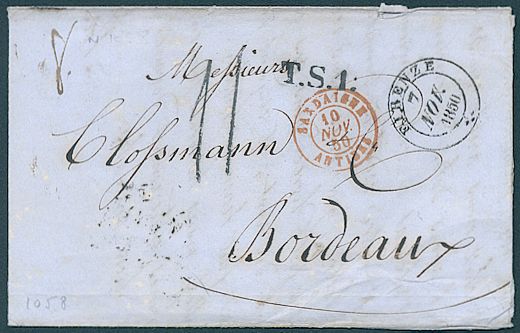 Messieurs
T.S.1.
FIRENZE
7
NOV.
1850
SARDAIGNE
10
NOV.
50
ANTIBES
11
Clossmann &
Bordeaux
1058